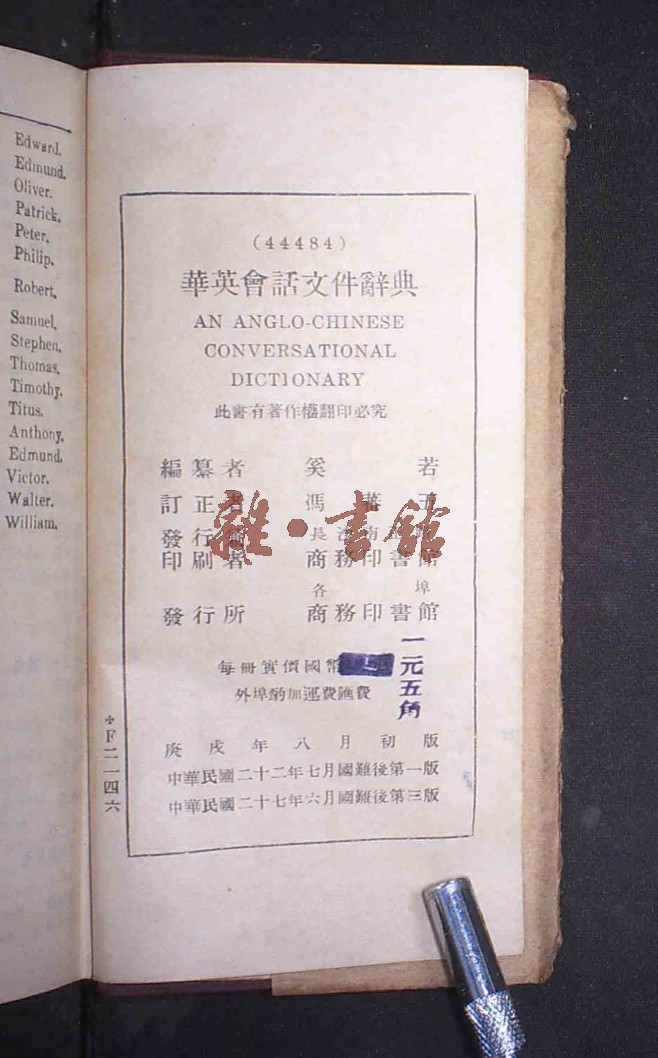 Edward.
Edmund.
Oliver.
Patrick.
Peter.
Philip.
Robert.
Samuel.
Stephen.
Thomas.
Timothy.
Titus.
Anthony.
Edmund.
Victor.
Walter.
William.
(44484)
華英會話文件辭典
AN ANGLO-CHINESE
CONVERSATIONAL
DICTIONARY
此書有著作權翻印必究
編纂者 奚若
訂正者
發行
印刷者 商務印書館
各埠
發行所 商務印書館
雜·書館
每冊實價國幣
一元五角
外埠酌加運費匯費
庚戌年八月初版
中華民國二十二年七月國難後第一版
中華民國二十七年六月國難後第三版
*F二一四六